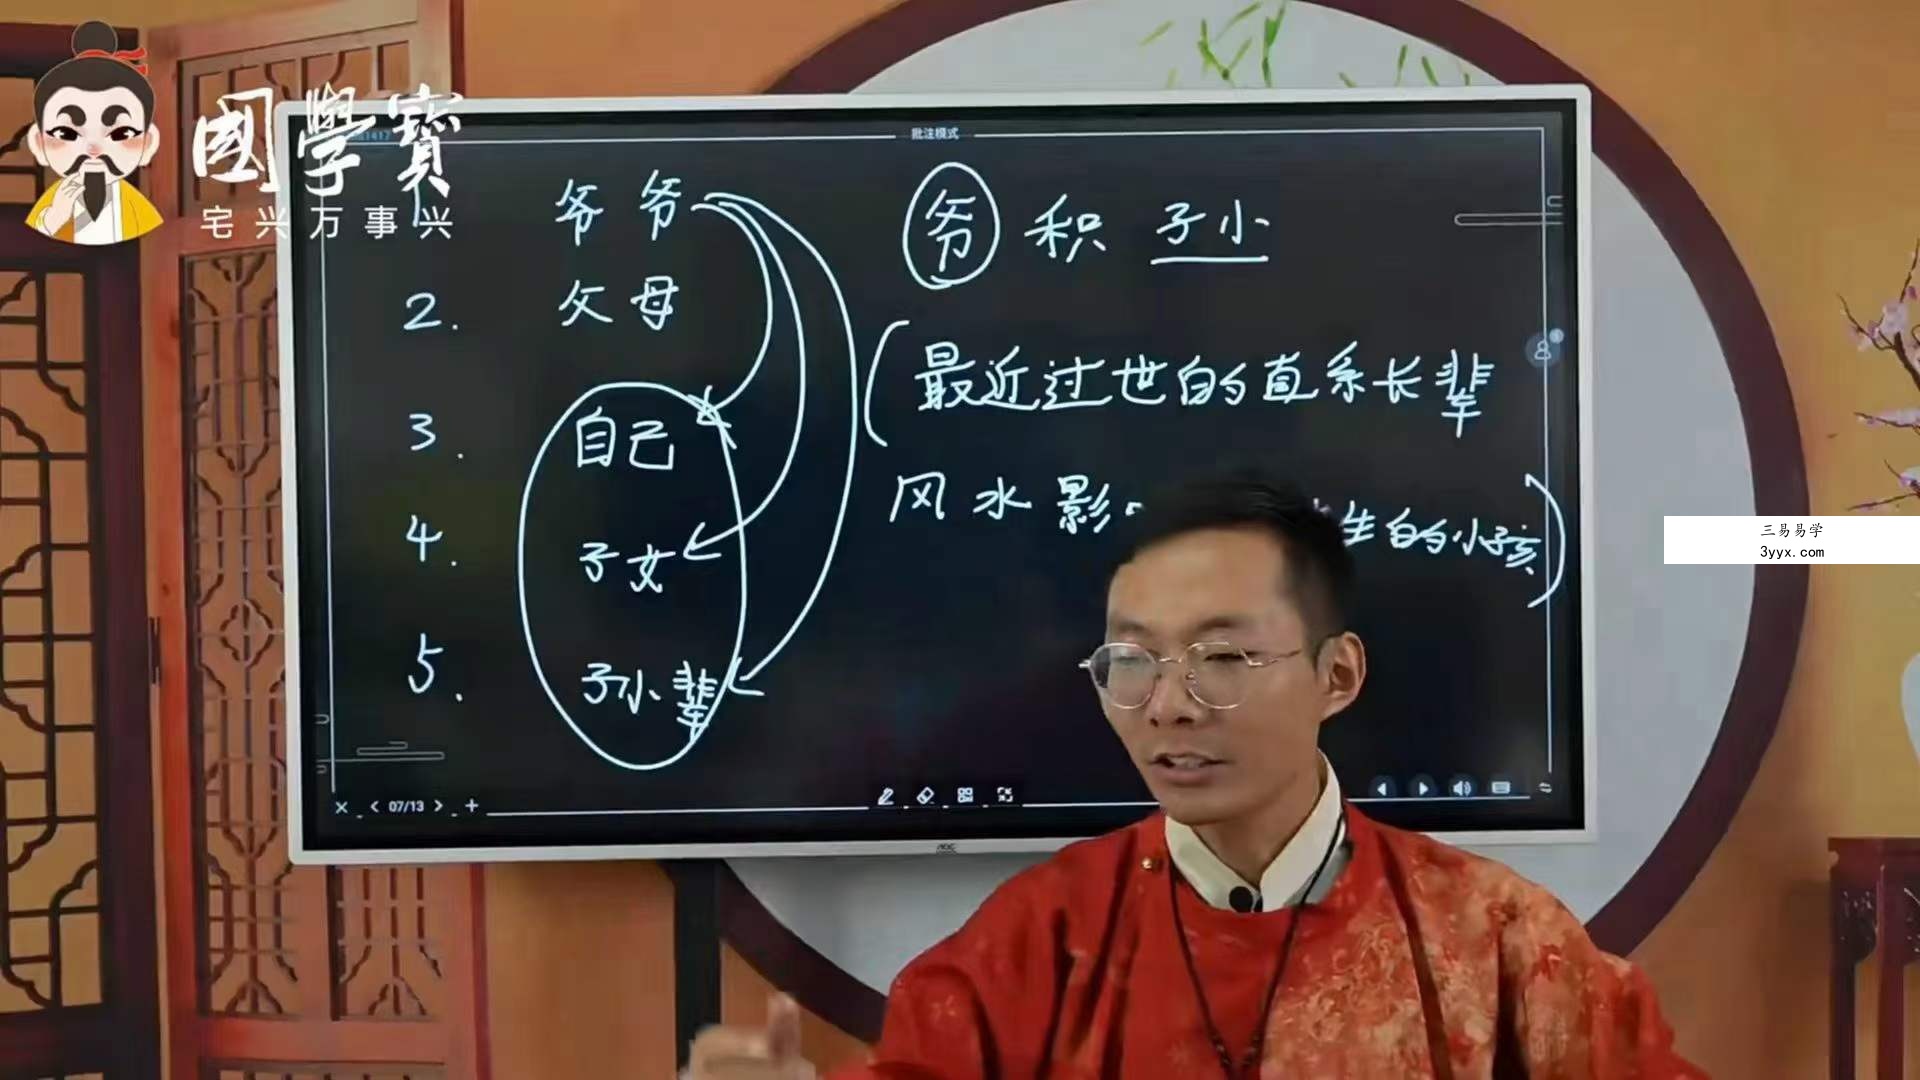 國學寶
宅兴万事兴
批注模式
爷爷
2. 父母
3. 自己
4. 子女
5. 子小辈
爷 积 子小
(最近过世的直系长辈
风水影 生的小孩)
07/13
AOC
三易易学
3yyx.com